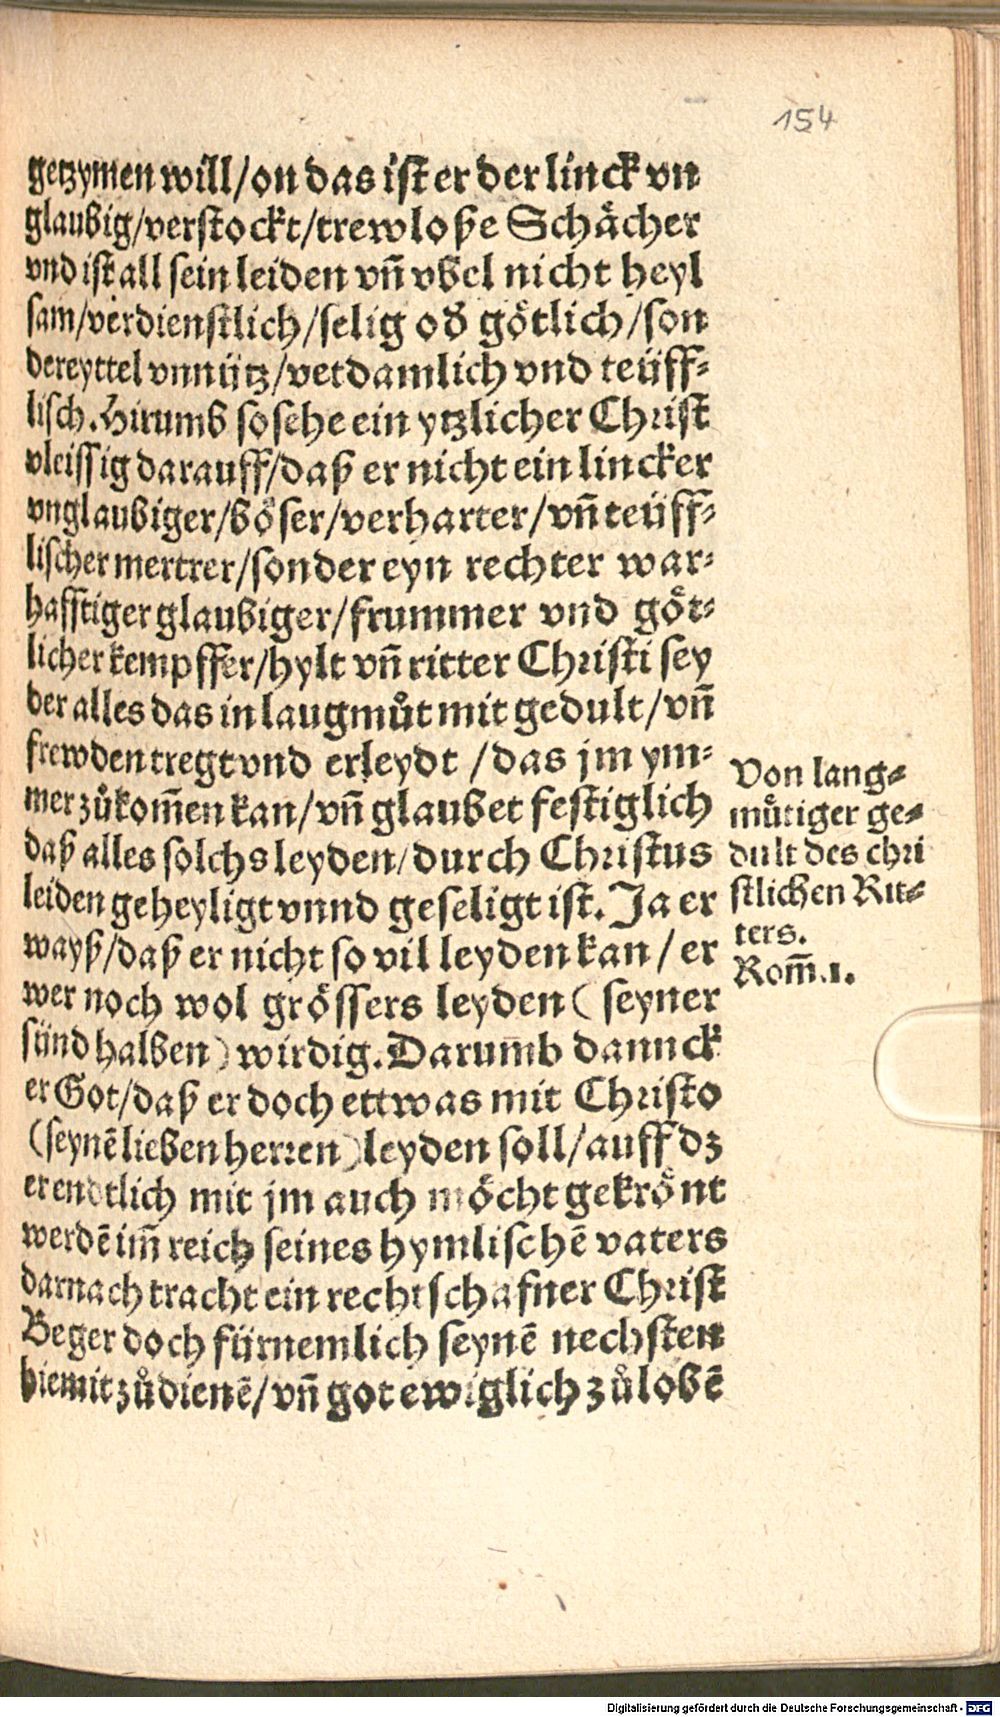 154
getzymen will/on das ist er der linck vn
glaubig/verstockt/trewloße Schächer
vnd ist all sein leiden vñ vbel nicht heyl
sam/verdienstlich/selig od̕ götlich/son
dereyttel vnnütz/vetdamlich vnd teüff⸗
lisch. Hirumb so sehe ein ytzlicher Christ
vleissig darauff/daß er nicht ein lincker
vnglaubiger/böser/verharter/vñ teüff⸗
lischer mertrer/sonder eyn rechter war⸗
hafftiger glaubiger/frummer vnd göt⸗
licher kempffer/hylt vñ ritter Christi sey
der alles das in laugmůt mit gedult/vñ
frewden tregt vnd erleydt /das jm ym⸗
mer zůkom̃en kan/vñ glaubet festiglich
daß alles solchs leyden/durch Christus
leiden geheyligt vnnd geseligt ist. Ja er
wayß/daß er nicht so vil leyden kan/ er
wer noch wol grössers leyden ( seyner
sünd halben) wirdig. Darum̃b dannck
er Got/daß er doch ettwas mit Christo
(seynē lieben herren) leyden soll/auff dz
er endtlich mit jm auch möcht gekrönt
werdē im̃ reich seines hymlischē vaters
darnach tracht ein rechtschafner Christ
Beger doch fürnemlich seynē nechsten
hiemit zůdienē/vñ got ewiglich zůlobē
Von lang⸗
mütiger ge⸗
dult des chri
stlichen Rit⸗
ters.
Rom̃.1.
Digitalisierung gefördert durch die Deutsche Forschungsgemeinschaft - DFG